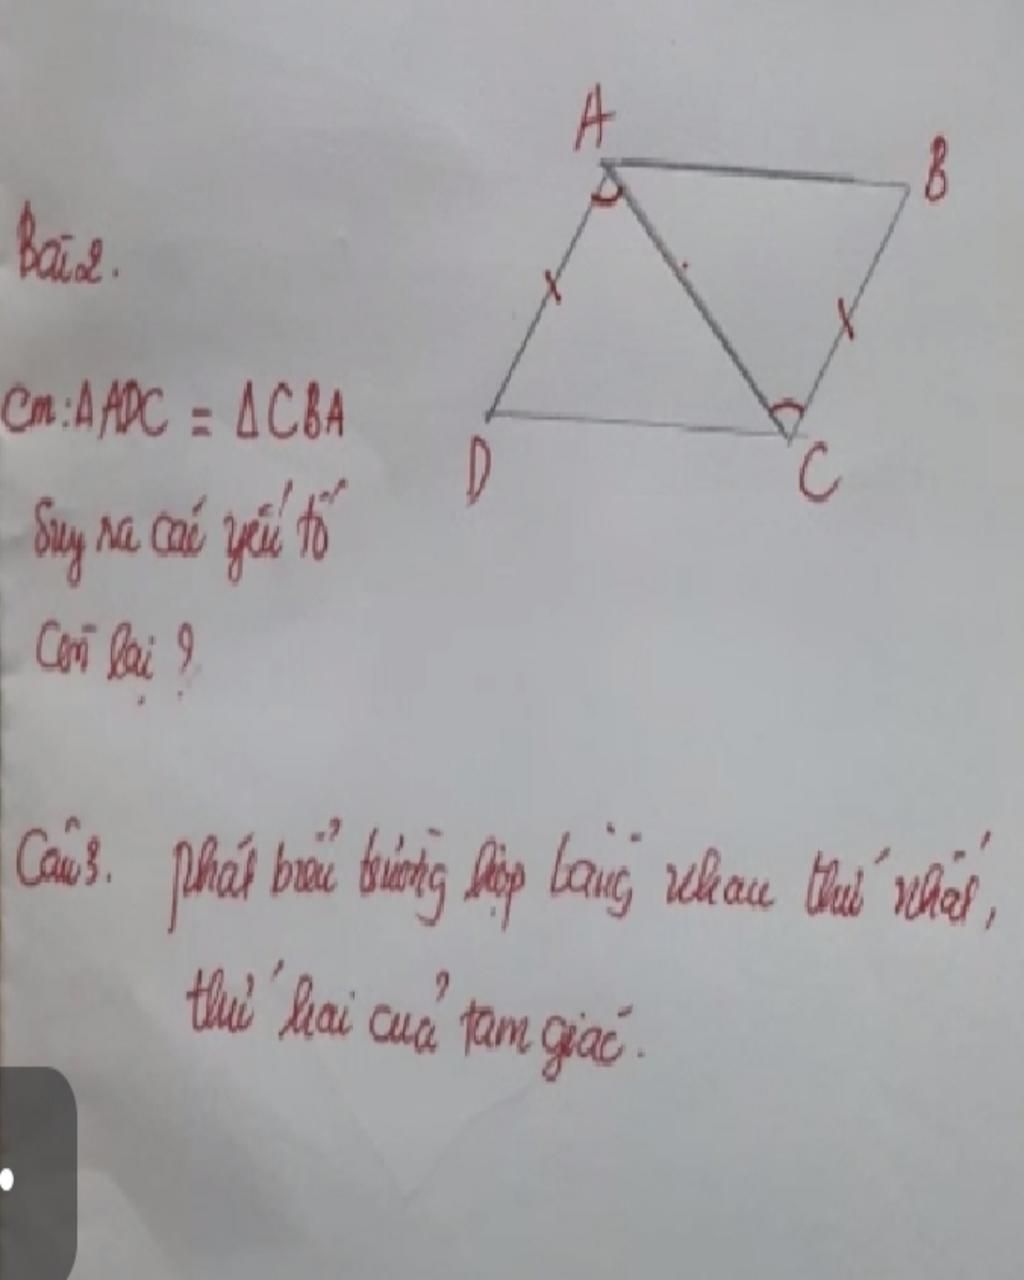 A
B
Bài 2.
Cm: ΔADC = ΔCBA
D
C
Suy ra các yếu tố
Còn lại ?
Câu 3. phát biểu trường hợp bằng nhau thứ nhất,
thứ hai của tam giác.